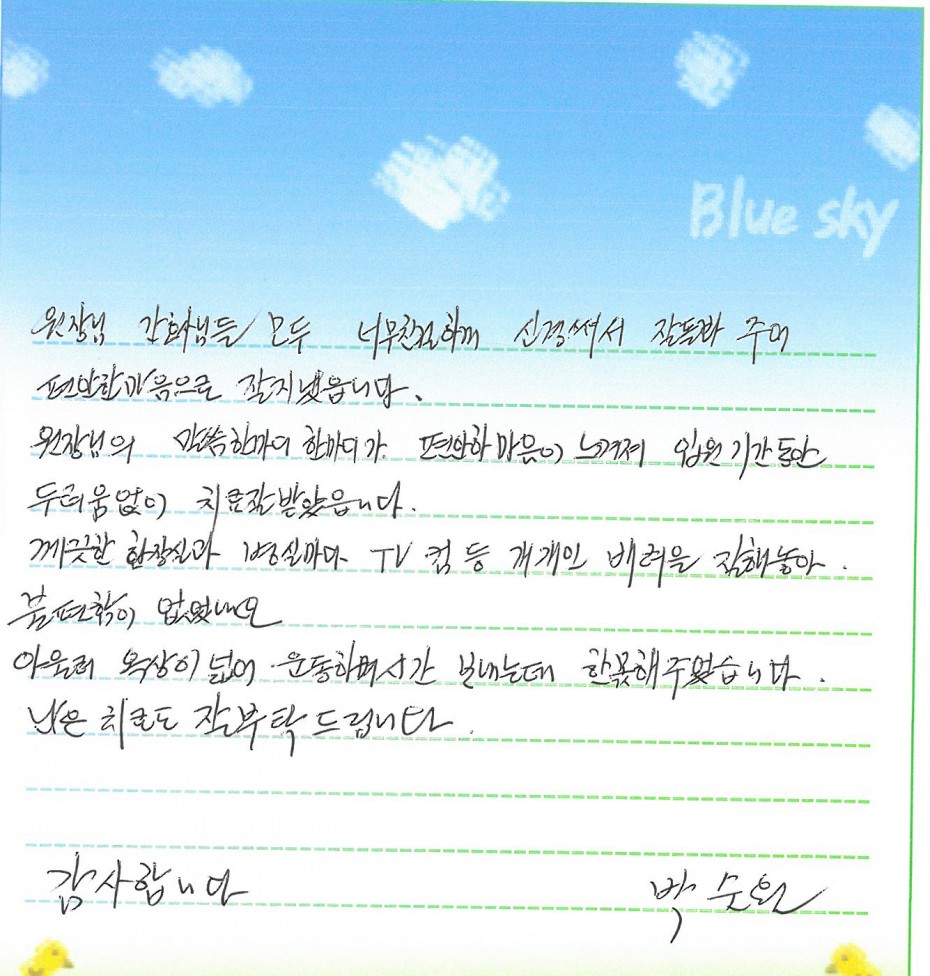 Blue sky
원장님 간호사님들 모두 너무친절하게 신경써서 잘돌봐 주어
편안한마음으로 잘지냈읍니다.
원장님의 말씀한마디 한마디가 편안한마음이 느껴져 입원기간동안
두려움없이 치료잘받았읍니다.
깨끗한 화장실과 병실마다 TV 컴 등 개개인 배려을 잘해놓아.
불편함이 없었네요
아울러 옥상이넓어 운동하며시간 보내는데 한몫해주었습니다.
남은 치료도 잘부탁드립니다.
감사합니다 박